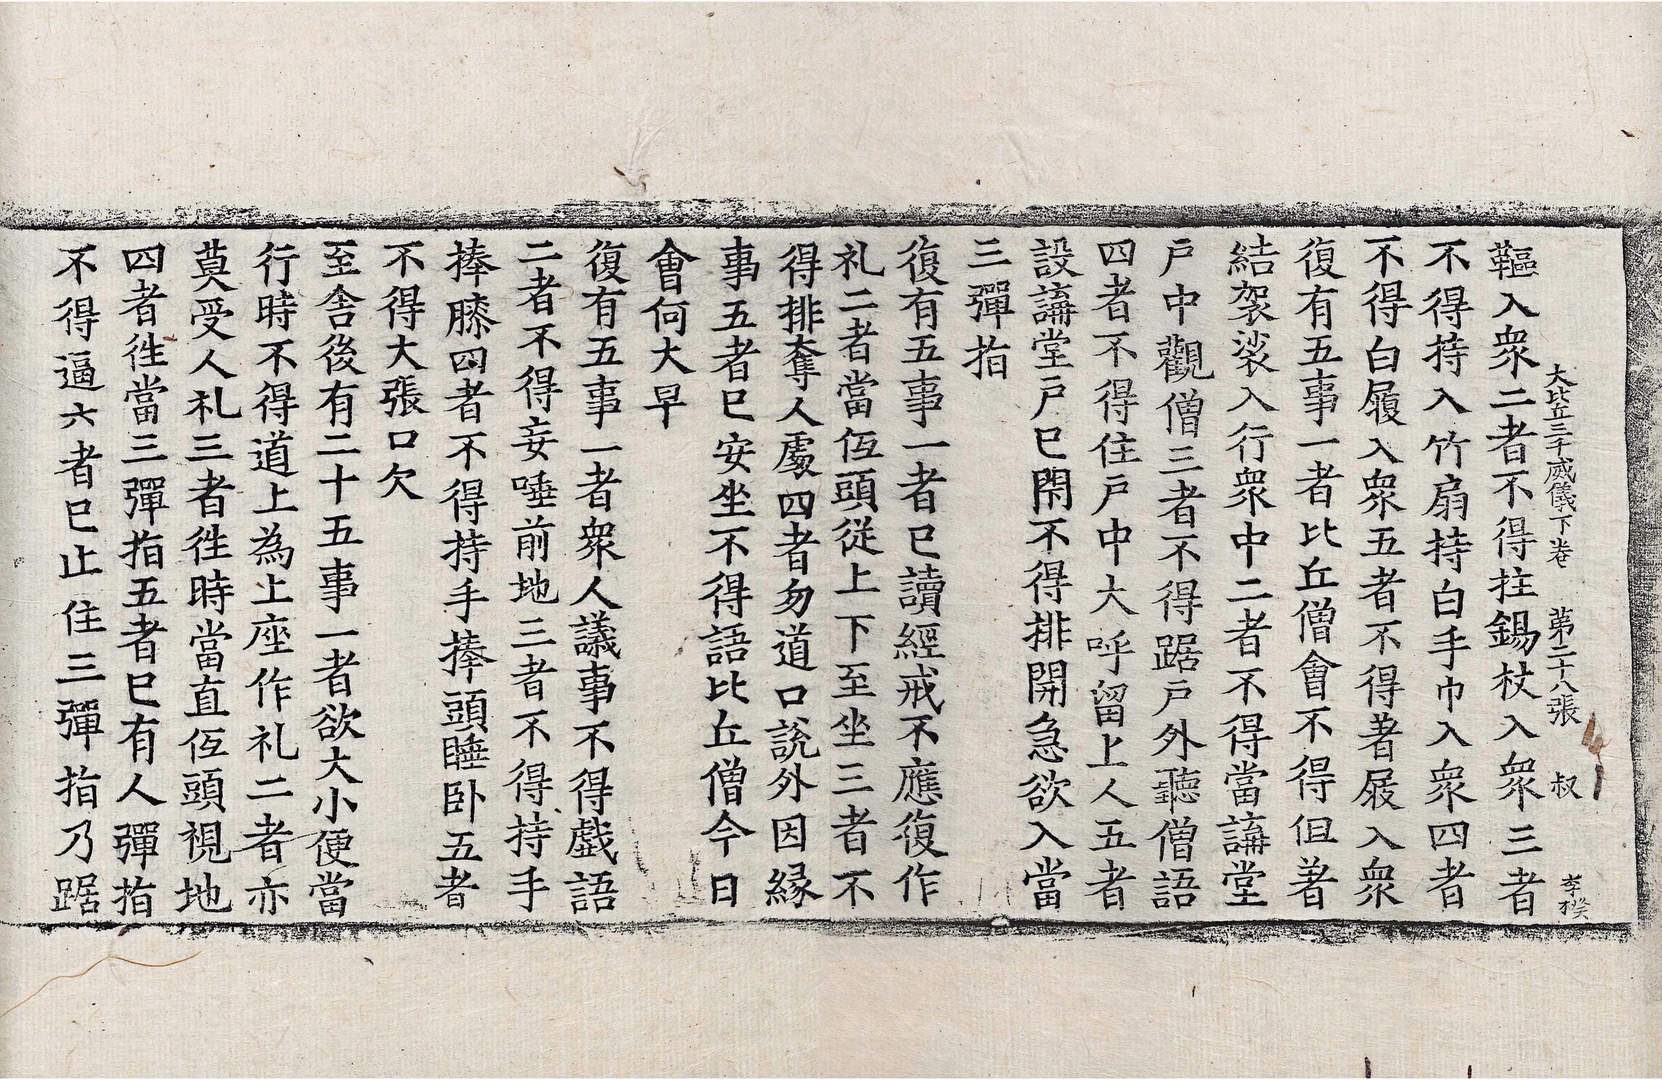 大比丘三千威儀下卷 第二十八張 叔 李揆
鞰入衆二者不得拄錫杖入衆三者
不得持入竹扇持白手巾入衆四者
不得白履入衆五者不得著屐入衆
復有五事一者比丘僧會不得但著
結袈裟入行衆中二者不得當講堂
戶中觀僧三者不得踞戶外聽僧語
四者不得住戶中大呼留上人五者
設講堂戶已閇不得排開急欲入當
三彈指
復有五事一者已讀經戒不應復作
礼二者當伍頭從上下至坐三者不
得排奪人處四者勿道口說外因緣
事五者已安坐不得語比丘僧今日
會何大早
復有五事一者衆人議事不得戲語
二者不得妄唾前地三者不得持手
捧膝四者不得持手捧頭睡卧五者
不得大張口欠
至舍後有二十五事一者欲大小便當
行時不得道上為上座作礼二者亦
莫受人礼三者徃時當直伍頭視地
四者徃當三彈指五者已有人彈指
不得逼六者已止住三彈指乃踞